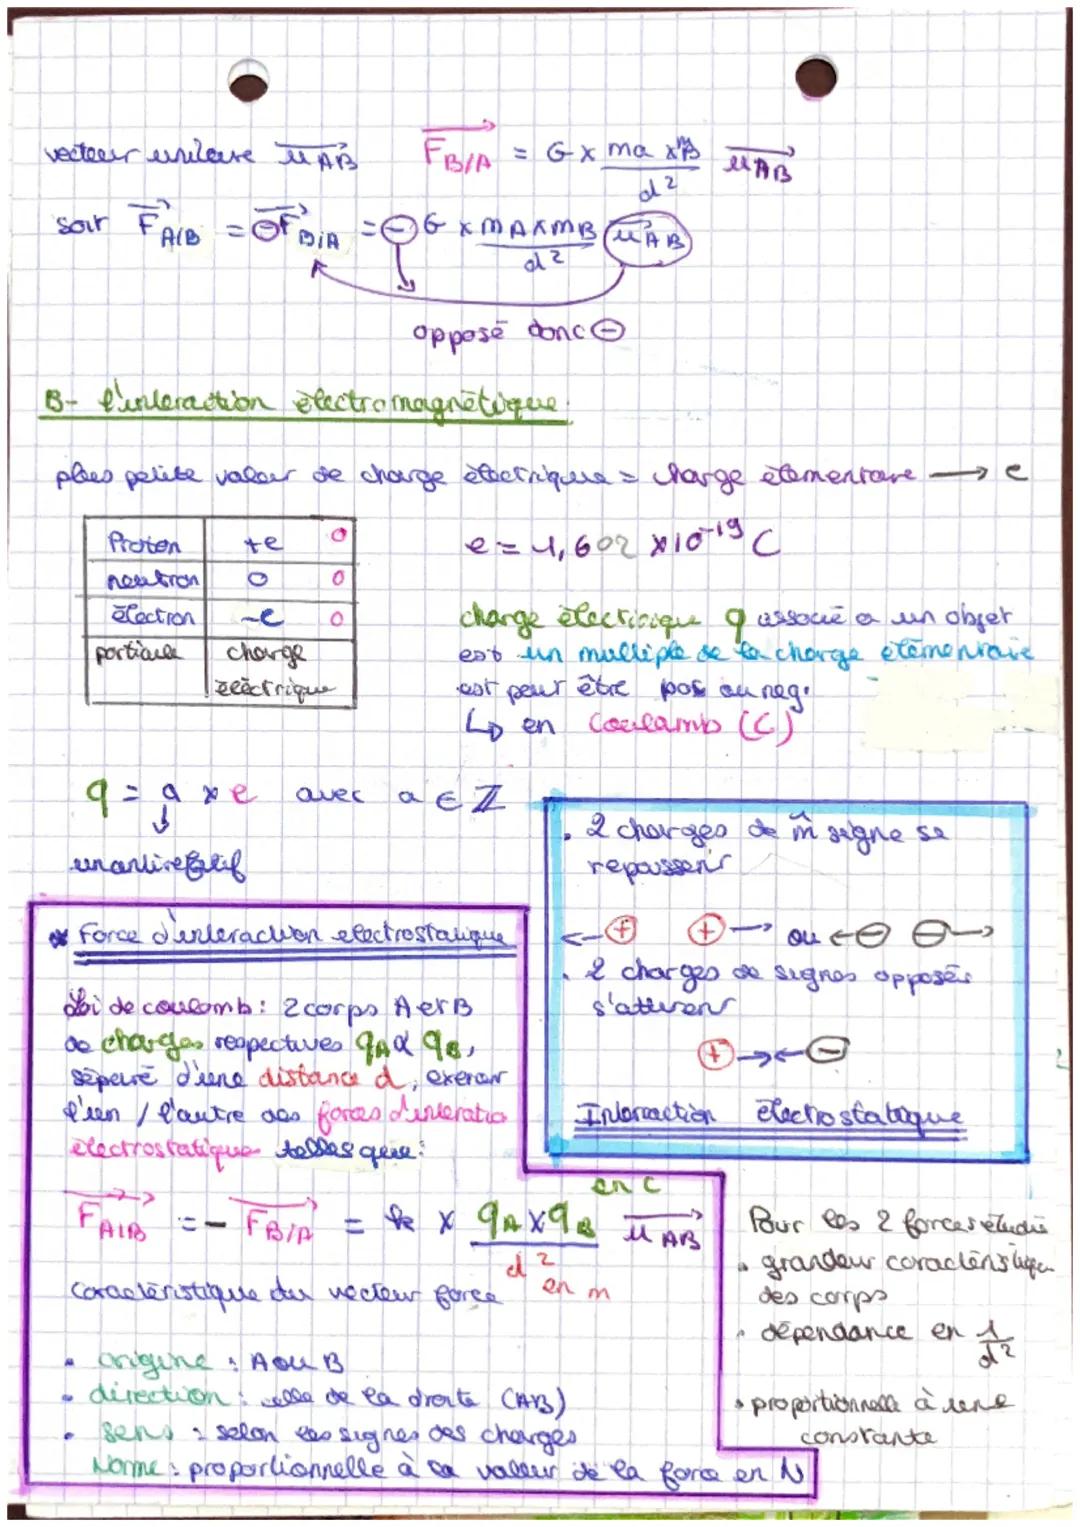 vecteur unitaire u⃗AB F⃗B/A = G x mA x mB / d² u⃗AB
soit F⃗A/B = ⊖F⃗B/A = ⊖ G x mA x mB / d² u⃗AB
opposé donc ⊖
B- l'interaction électromagnétique.
plus petite valeur de charge électrique = charge élémentaire → e
Proton +e 0
neutron 0 0
électron -e 0
particule charge
électrique
e = 1,602 x 10⁻¹⁹ C
charge électrique q associé a un objet
est un multiple de la charge élémentaire
est peut être pos ou neg.
↳ en Coulomb (C)
q = a x e avec a ∈ ℤ
↓
un entier relatif
• 2 charges de m̂ signe se
repoussent
←⊕ ⊕→ ou ←⊖ ⊖→
• 2 charges de signes opposés
s'attirent
⊕→←⊖
Interaction électrostatique
* Force d'interaction electrostatique
Loi de coulomb : 2 corps A et B
de charges respectives qA & qB,
séparé d'une distance d, exercent
l'un / l'autre des forces d'interatio
électrostatique telles que :
en C
F⃗A/B = - F⃗B/A = k x qA x qB / d² u⃗AB
en m
caractéristique du vecteur force
• origine : A ou B
• direction : celle de la droite (AB)
• sens : selon les signes des charges
Norme : proportionnelle à sa valeur de la force en N
Pour les 2 forces étudié
• grandeur caractéristique
des corps
• dépendance en 1/d²
• proportionnelle à une
constante